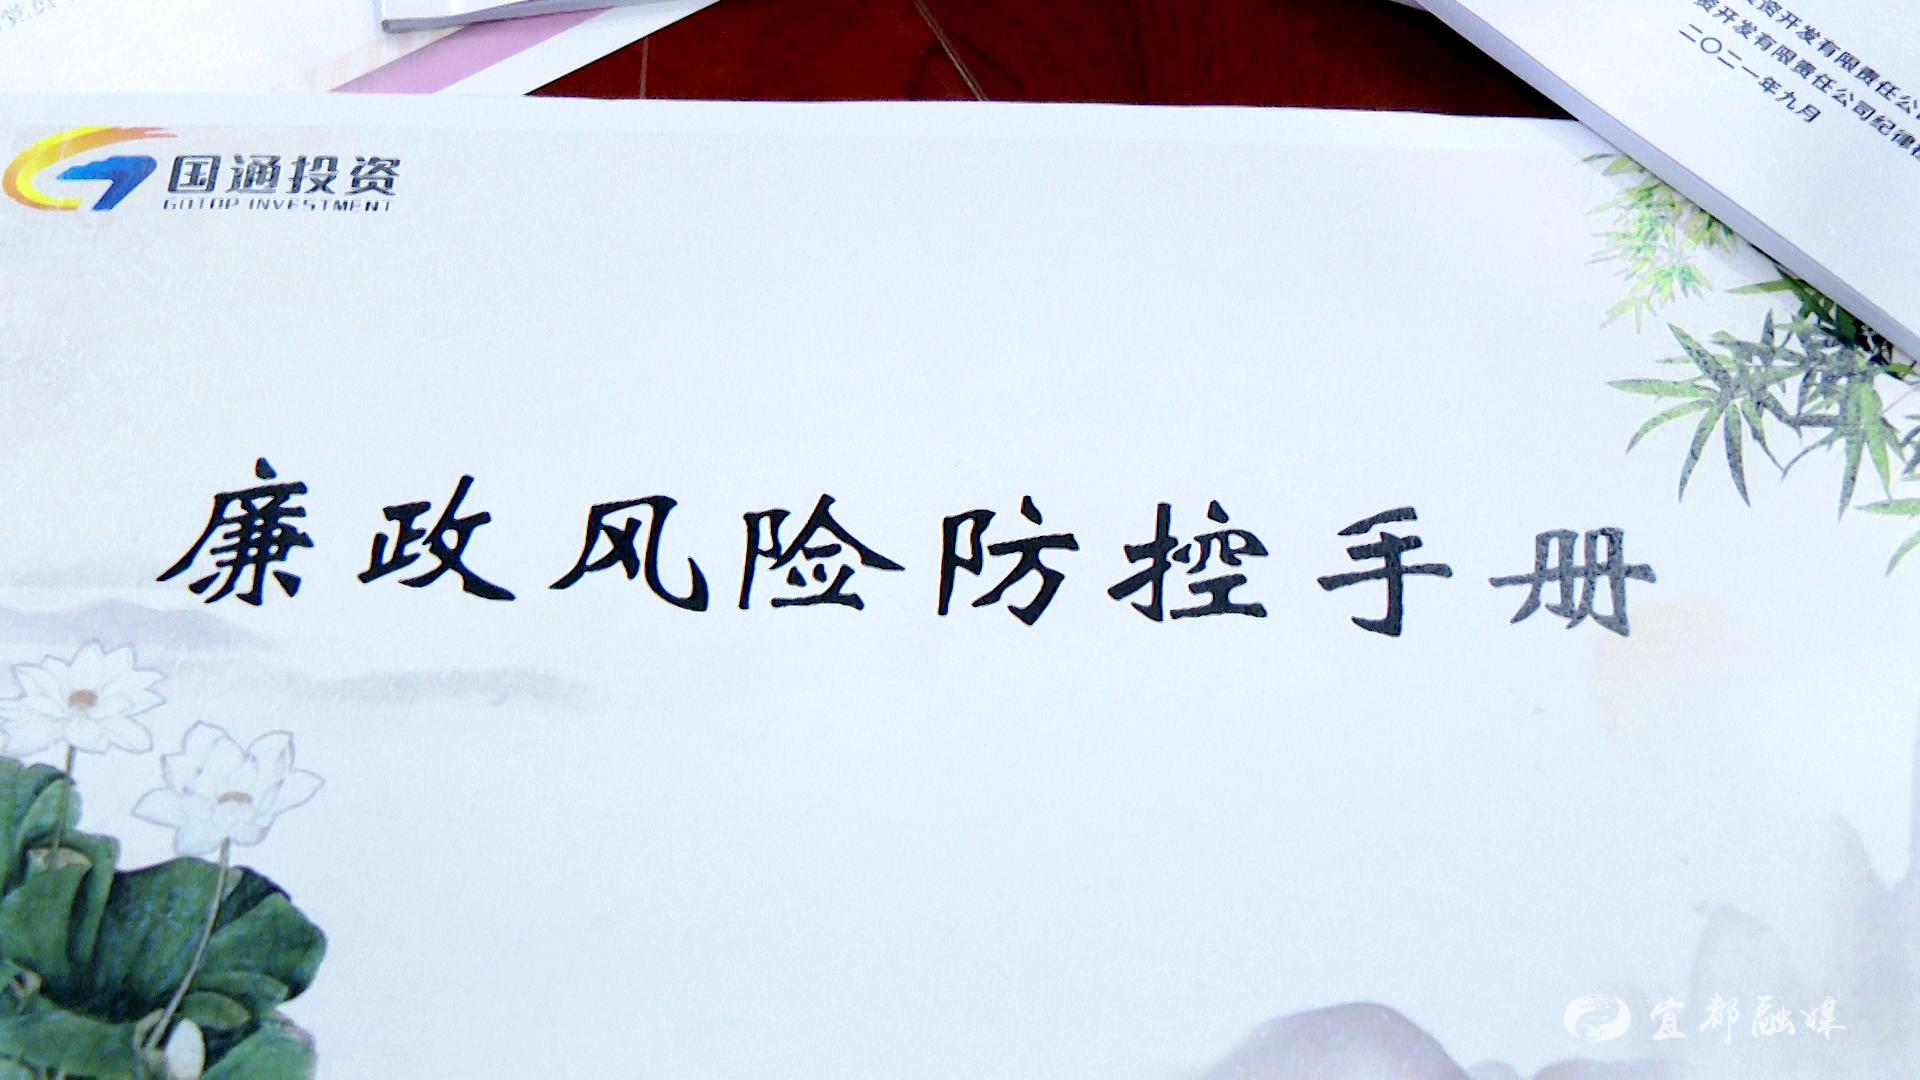 国通投资
GOTOP INVESTMENT
资开发有限责任公
资开发有限责任公司纪律
二〇二一年九月
廉政风险防控手册
宜都融媒